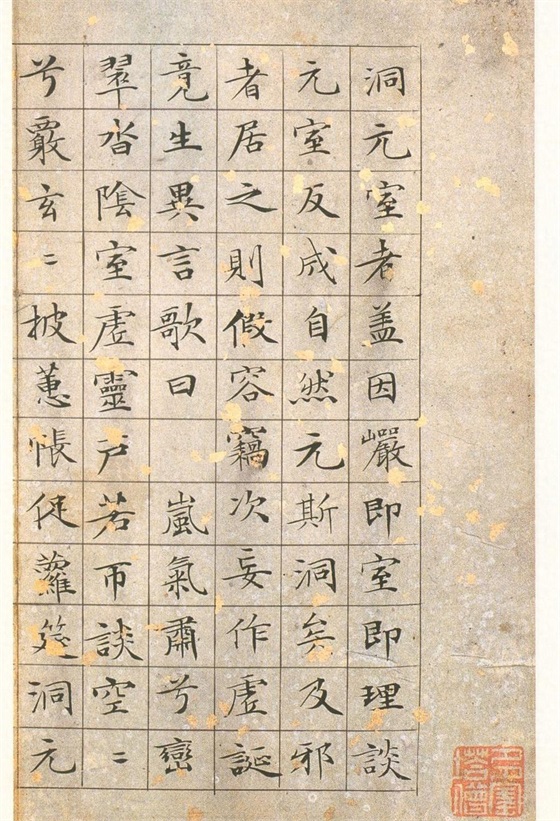 洞元室者盖因巗即室即理談
元室反成自然元斯洞矣及邪
者居之則假容竊次妄作虛誕
竟生異言歌曰 嵐氣肅兮巒
翠沓陰室虛靈戶若帀談空〻
兮覈玄〻披蕙帳促蘿筵洞元